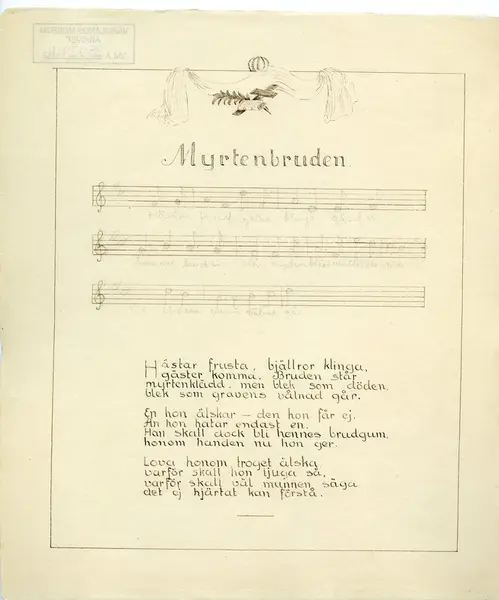 Myrtenbruden.
Hästar frusta, bjällror klinga,
gäster komma. Bruden står
myrtenklädd, men blek som döden,
blek som gravens vålnad går.
En hon älskar — den hon får ej.
Än hon hatar endast en.
Han skall dock bli hennes brudgum,
honom handen nu hon ger.
Lova honom troget älska
varför skall hon ljuga så,
varför skall väl munnen säga
det ej hjärtat kan förstå.